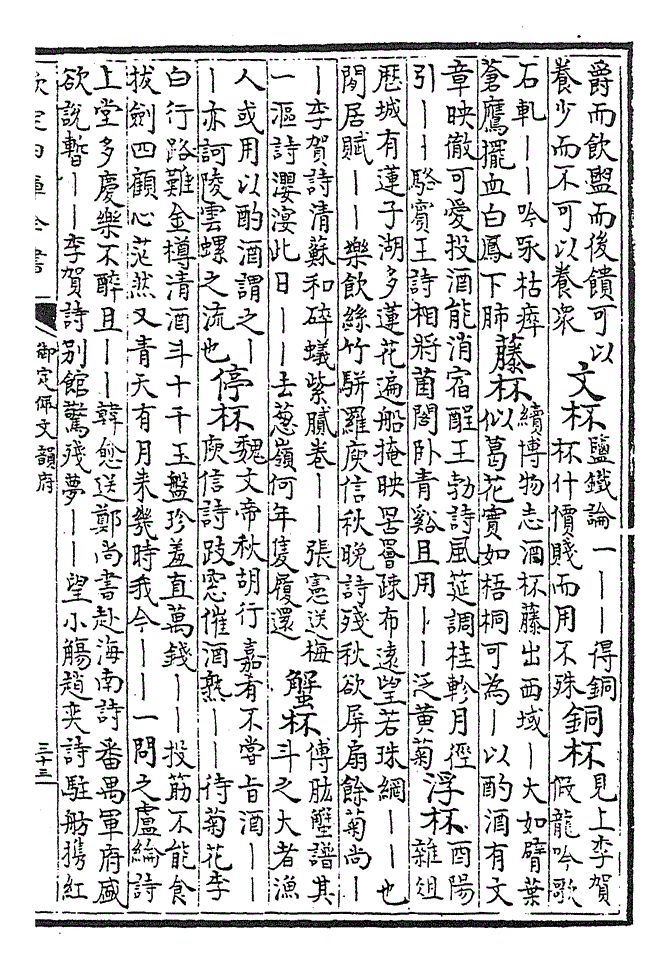 爵而飲盥而後饋可以
養少而不可以養衆
文杯
鹽鐵論一丨丨得銅
杯什價賤而用不殊
銅杯
見上李賀
假龍吟歌
石軋丨丨吟啄枯瘁
蒼鷹擺血白鳳下肺
藤杯
續博物志酒杯藤出西域丨大如臂葉
似葛花實如梧桐可為丨以酌酒有文
章映徹可愛投酒能消宿酲王勃詩風筵調桂軫月徑
引丨丨駱賓王詩相將菌閣卧青谿且用丨丨泛黄菊
浮杯
酉陽
雜俎
歴城有蓮子湖多蓮花遍船掩映罟罾疎布遠望若珠網丨丨也
閒居賦丨丨樂飲絲竹駢羅庾信秋晚詩殘秋欲屏扇餘菊尚丨
丨李賀詩清蘇和碎蟻紫膩卷丨丨張憲送梅
一漚詩瀠渟此日丨丨去葱嶺何年隻履還
蟹杯
傅肱蟹譜其
斗之大者漁
人或用以酌酒謂之丨
丨亦訶陵雲螺之流也
停杯
魏文帝秋胡行嘉肴不嘗旨酒丨丨
庾信詩跂窓催酒熟丨丨待菊花李
白行路難金樽清酒斗十千玉盤珍羞直萬錢丨丨投筯不能食
拔劍四顧心茫然又青天有月来幾時我今丨丨一問之盧綸詩
上堂多慶樂不醉且丨丨韓愈送鄭尚書赴海南詩番禺軍府盛
欲說暫丨丨李賀詩别館驚殘夢丨丨望小觴趙奕詩駐舫携紅
欽定四庫全書
御定佩文韻府
三十三